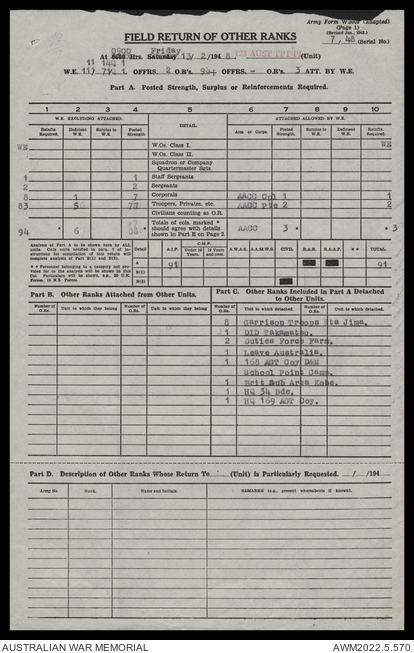 Army Form W.3009 (Adapted)
(Page 1)
(Revised Jan., 1943.)
7 / 48 (Serial No.)
FIELD RETURN OF OTHER RANKS
0900 Friday
At Hrs. Saturday 13/ 2/194 8. (Unit)
11 144 1
W.E. OFFRS. 2 O.R's. 94+ OFFRS. - O.R's. 3 ATT. BY W.E.
Part A. Posted Strength, Surplus or Reinforcements Required.
1 2 3 4 5 6 7 8 9 10
W.E. EXCLUDING ATTACHED. DETAIL. ATTACHED ALLOWED BY W.E.
Reinfts. Required. Deficient W.E. Surplus to W.E. Posted Strength Arm or Corps. Posted Strength Surplus to W.E. Deficient W.E. Reinfts. Required.
WE W.Os. Class I. WE
W.Os. Class II.
Squadron or Company Quartermaster Sgts.
1 1 Staff Sergeants
2 2 Sergeants
8 1 7 Corporals AACC Cpl 1 1
83 5 Troopers, Privates, etc. AACC Pte 2 2
Civilians counting as O.R.
94 * 6 Totals of cols. marked * should agree with details shown in Part E on Page 2. AACC 3 * * 3
Analysis of Part A to be shown here by ALL units.
Detail A.I.F. C.M.F. A.W.A.S. A.A.M.W.S. CIVIL R.A.N. R.A.A.F. * * TOTAL.
Under 19 Years 19 Years and over.
A 91 91
B(1)
B(2)
Part B. Other Ranks Attached from Other Units.
Part C. Other Ranks Included in Part A Detached to Other Units.
Number of O.Rs. Unit to which they belong Number of O.Rs. Unit to which they belong Number of O.Rs. Unit to which detached. Number of O.Rs. Unit to which detached.
8 Garrison Troops Eta Jima.
1 DID Takamatsu.
2 Duties Force Farm.
1 Leave Australia.
1 168 AGT Coy D&M
School Point Camp.
1 Brit Sub Area Kobe.
1 HQ 34 Bde.
1 HQ 169 AGT Coy.
Part D. Description of Other Ranks Whose Return To (Unit) is Particularly Requested. / /194
Army No Rank. Name and Initials. REMARKS (e.g., present whereabouts if known).
AUSTRALIAN WAR MEMORIAL
AWM2022.5.570